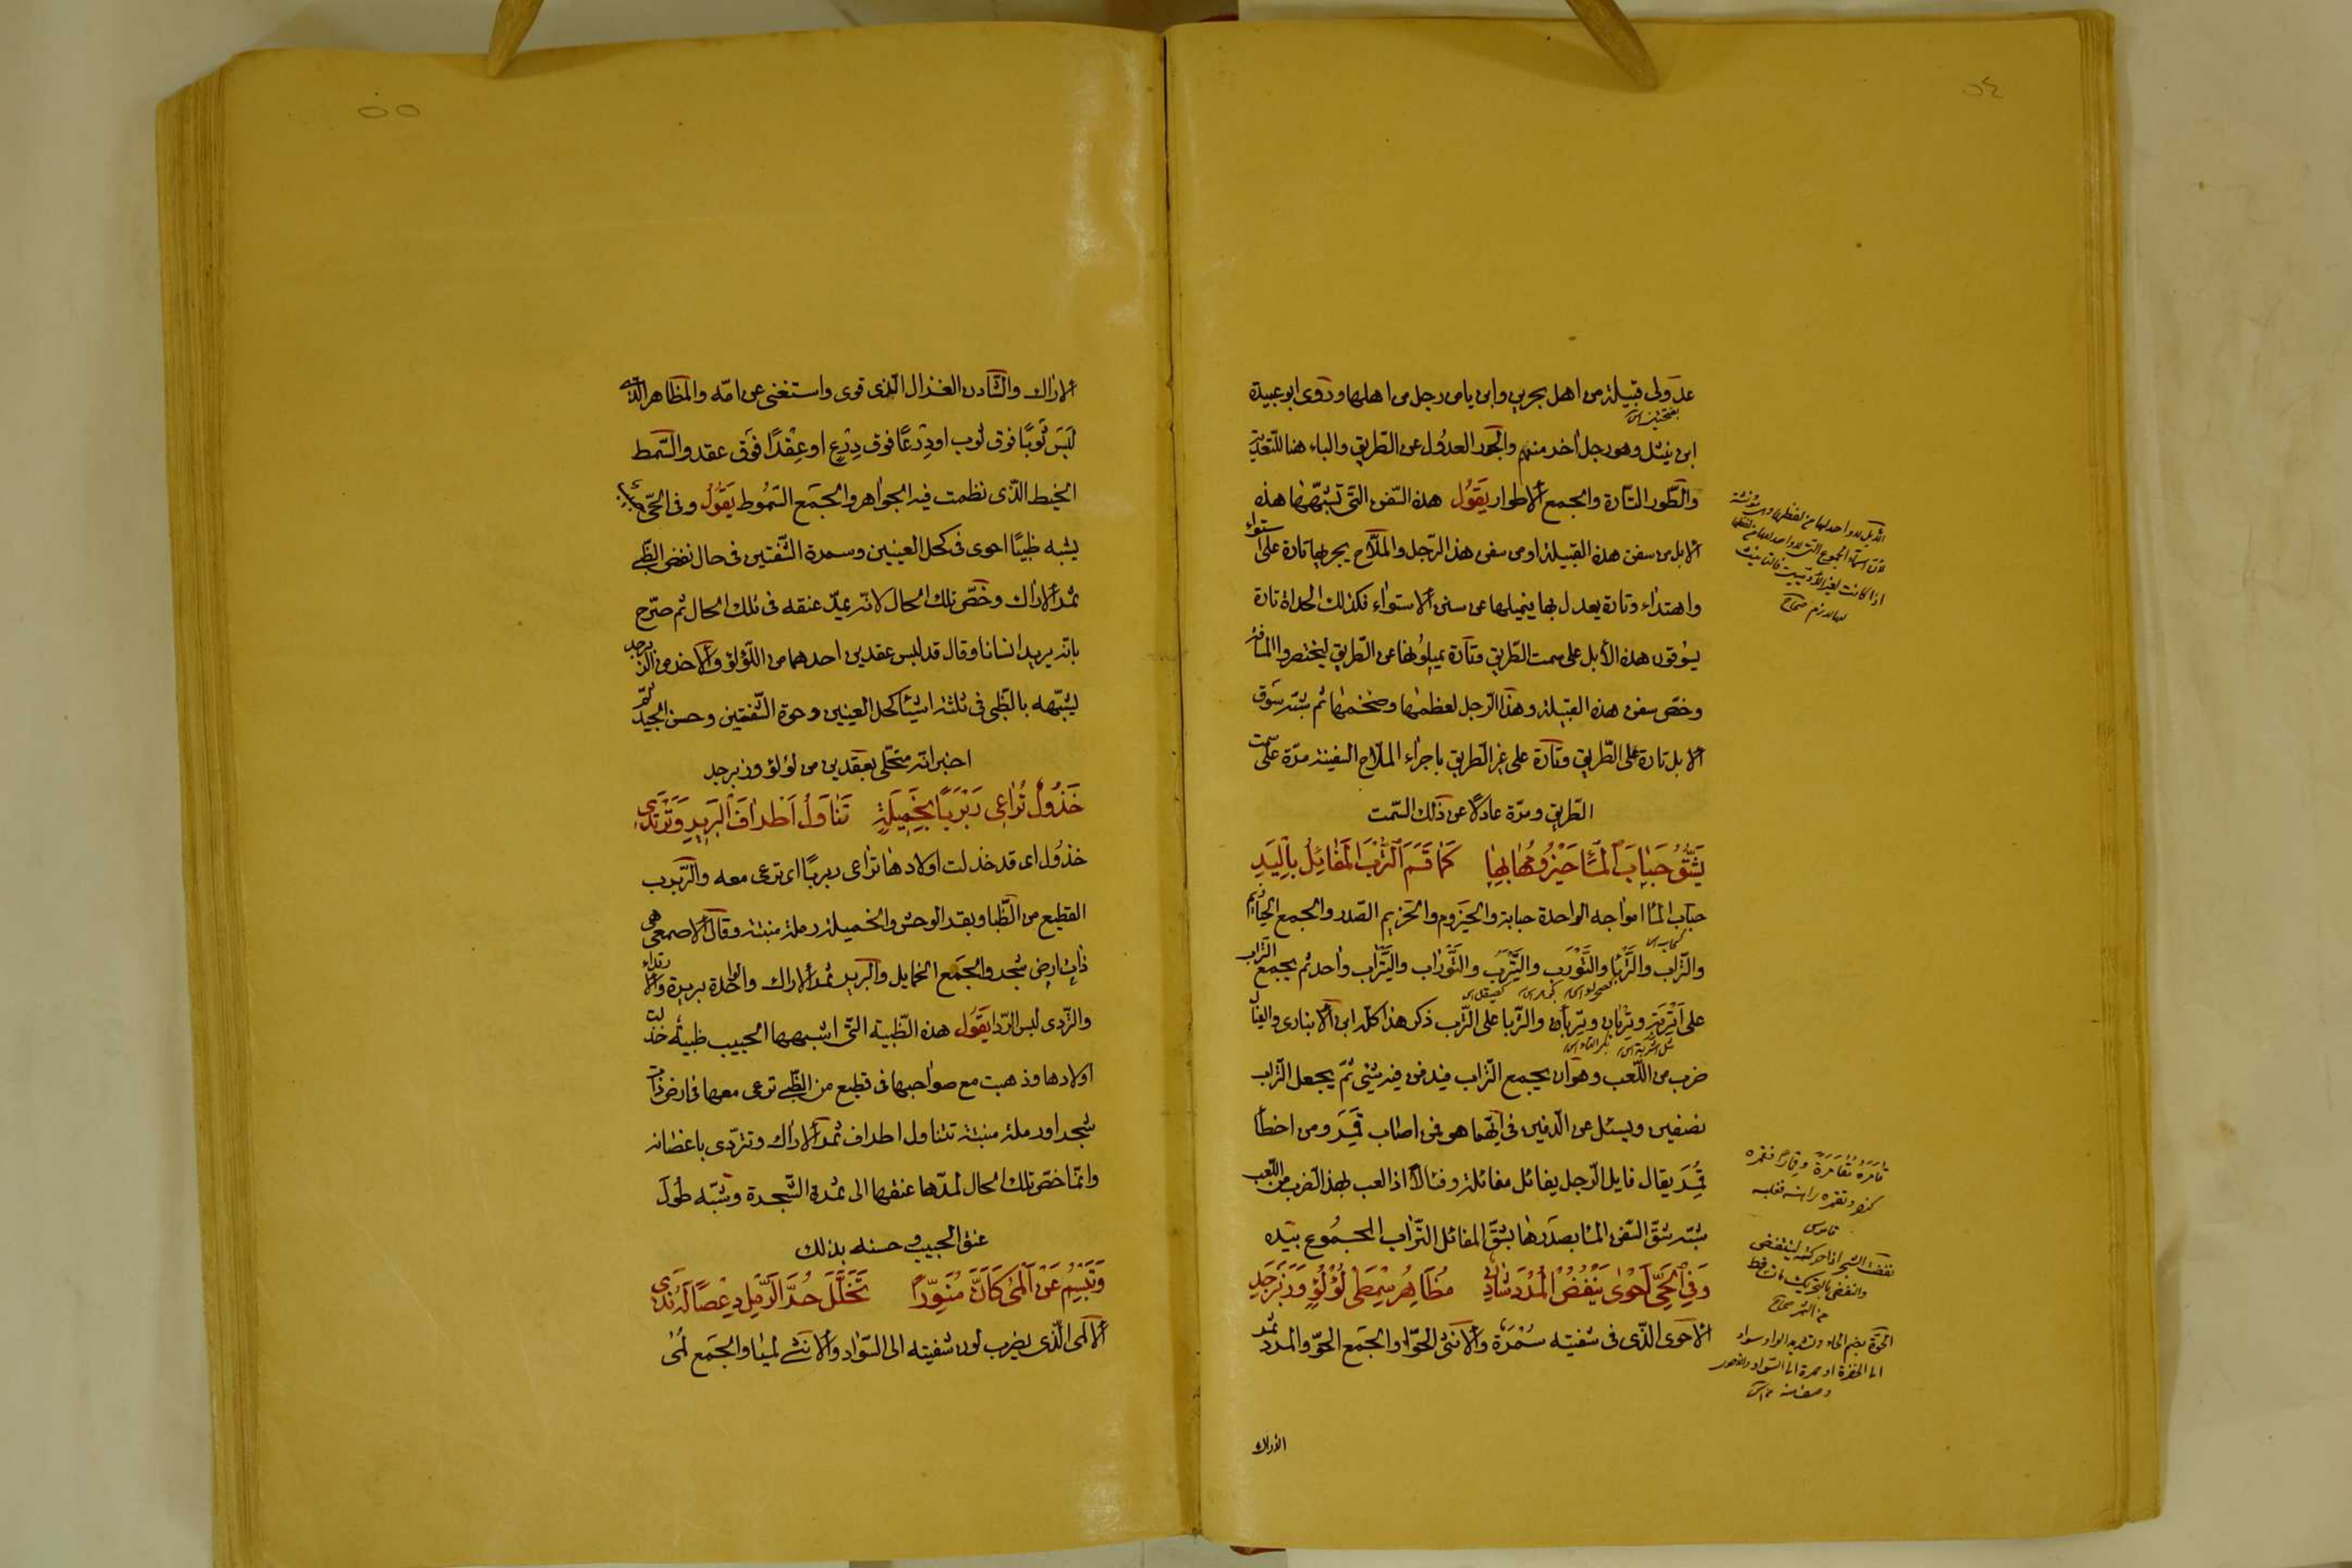 ٥٤
عدولى قبيلة من اهل بحرين وابن يامن رجل من اهلها وروى ابو عبيدة
بفتحتين
ابن نبتل وهو رجل اخر منهم والجور العدول عن الطريق والباء هنا للتعدية
والطور التارة والجمع الاطوار يَقُولُ هذه السفن التى تشبهها هذه
الابل من سفن هذه القبيلة او من سفن هذ الرجل والملاح يجريها تارة على استواء
واهتداء وتارة يعدل بها يميلها عن سنن الاستواء فكذلك الحداة تارة
يسوقون هذه الأبل على سمت الطريق وتارة يميلونها عن الطريق ليختصروا المسافة
وخصّ سفن هذه القبيلة وهذا الرجل لعظمها وضخمها ثم شبّه سوق
الابل تارة على الطريق وتارة على غير الطريق باجراء الملاح السفينة مدّة على سمت
الطريق ومدّة عادلا عن ذلك السمت
يَشُقُّ حَبَابَ المَاءِ حَيْزُومُهَا بِهَا كَمَا قَسَمَ التُّرْبَ المُفَايِلُ بِالْيَدِ
حباب الماء امواجه الواحدة حبابة والحيزوم والحزيم الصدر والجمع الحيازيم
والتراب والتربا والتورب والتيرب والتوراب والتيراب واحد ثم يجمع التراب
على اتربة وتربان وتربان والتربا على الترب ذكر هذا كله ابن الانبارى والفيال
ضرب من اللعب وهو ان يجمع التراب فيدفن فيه شئ ثم يجعل التراب
نصفين ويسئل عن الدفين فى ايّهما هو فمن اصاب قَمَرَ ومن اخطأ
قُمِرَ يقال فايل الرجل يفائل مفائلة وفئالا اذ العب بهذ الضرب من اللعب
شبّه شقّ السفن الماء بصدرها بشقّ المفائل التراب المجموع بيده
وَفِي الحَيِّ أَحْوٰى يَنْفُضُ المَرْدَ شَادِنٌ مُظَاهِرُ سِمْطَىْ لُؤْلُؤٍ وَزَبَرْجَدِ
الاحوى الذى فى شفتيه سُمْرَة والانثى الحوّا والجمع الحوّ والمرد ثمر
الاراك
اذا كانت لغير الآدميين فالتانيث
لها لازم صحاح
قامره مقامرة وقمارا فقمره
قاموس
من الثمر صحاح
٥٥
الاراك والشادن الغزال الذى قوى واستغنى عن امّه والمظاهر الذى
لبس ثوبًا فوق ثوب او دِرْعًا فوق دِرْعٍ او عِقْدًا فوق عقد والسّمط
الخيط الذى نظمت فيه الجواهر والجمع السّموط يَقُولُ وفى الحىّ
يشبه ظبيًا احوى فى كحل العينين وسمرة الشفتين فى حال نفض الظبى
ثمر الاراك وخصّ تلك الحال لانه يمدّ عنقه فى تلك الحال ثم صرّح
بانه يريد انسانا وقال قد لبس عقدين احدهما من اللؤلؤ والاخر من الزبرجد
يشبّهه بالظبى فى ثلثة اشيئا كحل العينين وحوة الشفتين وحسن الجيد ثم
اخبر انه متحلّى بعقدين من لؤلؤ وزبرجد
خَذُولٌ تُرَاعِى رَبْرَبًا بِخَمِيلَةٍ تَنَاوَلُ أَطْرَافَ البَرِيرِ وَتَرْتَدِى
خذول اى قد خذلت اولادها تراعى ربربًا اى ترعى معه والربرب
القطيع من الظبا وبقر الوحش والخميلة رملة منبتة وقال الاصمعى هى
ذات ارض شجر والجمع الخمايل والبرير ثمر الاراك والواحدة بريرة والارتداء
والتردى لبس الردا يَقُول هذه الظبية التى اشبهها الحبيب ظبية خذلت
اولادها وذهبت مع صواحبها فى قطيع من الظبى ترعى معها فى ارض ذات
شجر او رملة منبتة تتناول اطراف ثمر الاراك وترتدى باغصانه
وانما خصّ تلك الحال لمدّها عنقها الى ثمرة الشجرة وشبّه طول
عنق الحبيب وحسنه بذلك
وَتَبْسِمُ عَنْ أَلْمَى كَأَنَّ مُنَوِّرًا تَخَلَّلَ حُرَّ الرَّمْلِ دِعْصًا لَهُ نَدِى
الالمى الذى يضرب لون شفتيه الى السواد والانثى لميا والجمع لُمْى